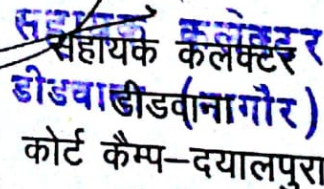 सहायक कलेक्टर
सहायक कलक्टर
डीडवाना (नागौर)
डीडवाना
कोर्ट कैम्प–दयालपुरा